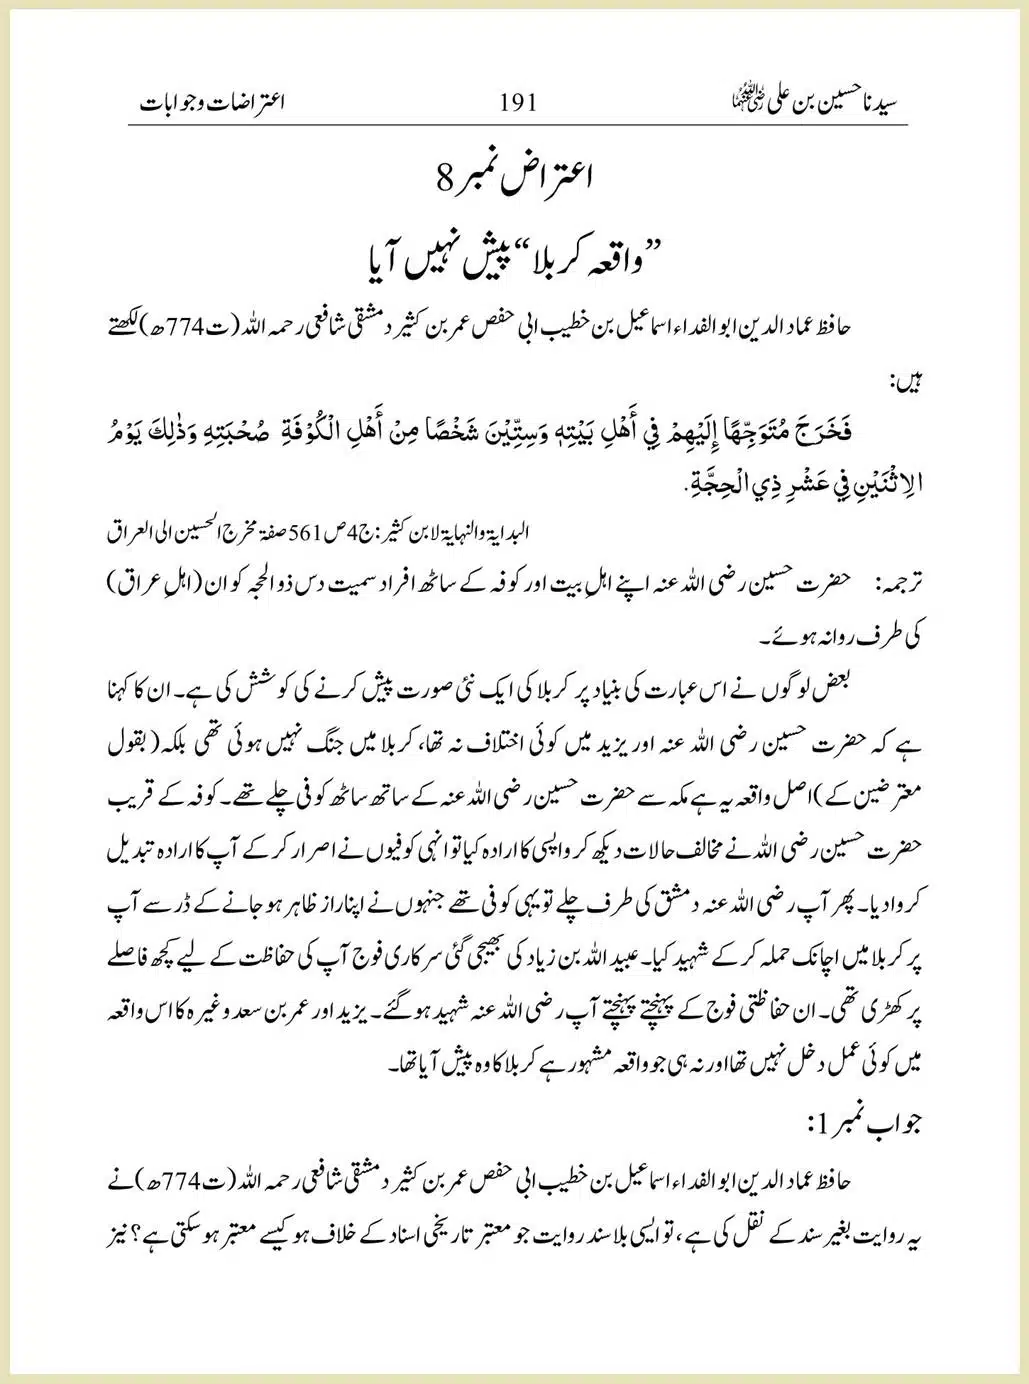 سیدنا حسین بن علی رضی اللہ عنہما 191 اعتراضات و جوابات
اعتراض نمبر 8
”واقعہ کربلا“ پیش نہیں آیا
حافظ عماد الدین ابو الفداء اسماعیل بن خطیب ابی حفص عمر بن کثیر دمشقی شافعی رحمہ اللہ (ت774ھ) لکھتے
ہیں:
فَخَرَجَ مُتَوَجِّهًا إِلَيْهِمْ فِي أَهْلِ بَيْتِهٖ وَسِتِّيْنَ شَخْصًا مِنْ أَهْلِ الْكُوْفَةِ صُحْبَتِهِ وَذٰلِكَ يَوْمُ
الِاثْنَيْنِ فِي عَشْرِ ذِي الْحِجَّةِ.
البدایۃ والنہایۃ لابن کثیر: ج4 ص561 صفۃ مخرج الحسین الی العراق
ترجمہ: حضرت حسین رضی اللہ عنہ اپنے اہلِ بیت اور کوفہ کے ساٹھ افراد سمیت دس ذوالحجہ کو ان (اہلِ عراق)
کی طرف روانہ ہوئے۔
بعض لوگوں نے اس عبارت کی بنیاد پر کربلا کی ایک نئی صورت پیش کرنے کی کوشش کی ہے۔ ان کا کہنا
ہے کہ حضرت حسین رضی اللہ عنہ اور یزید میں کوئی اختلاف نہ تھا، کربلا میں جنگ نہیں ہوئی تھی بلکہ (بقول
معترضین کے) اصل واقعہ یہ ہے مکہ سے حضرت حسین رضی اللہ عنہ کے ساتھ ساٹھ کوفی چلے تھے۔ کوفہ کے قریب
حضرت حسین رضی اللہ نے مخالف حالات دیکھ کر واپسی کا ارادہ کیا تو انہی کوفیوں نے اصرار کر کے آپ کا ارادہ تبدیل
کروا دیا۔ پھر آپ رضی اللہ عنہ دمشق کی طرف چلے تو یہی کوفی تھے جنہوں نے اپنا راز ظاہر ہو جانے کے ڈر سے آپ
پر کربلا میں اچانک حملہ کر کے شہید کیا۔ عبید اللہ بن زیاد کی بھیجی گئی سرکاری فوج آپ کی حفاظت کے لیے کچھ فاصلے
پر کھڑی تھی۔ ان حفاظتی فوج کے پہنچتے پہنچتے آپ رضی اللہ عنہ شہید ہو گئے۔ یزید اور عمر بن سعد وغیرہ کا اس واقعہ
میں کوئی عمل دخل نہیں تھا اور نہ ہی جو واقعہ مشہور ہے کربلا کا وہ پیش آیا تھا۔
جواب نمبر 1:
حافظ عماد الدین ابو الفداء اسماعیل بن خطیب ابی حفص عمر بن کثیر دمشقی شافعی رحمہ اللہ (ت774ھ) نے
یہ روایت بغیر سند کے نقل کی ہے، تو ایسی بلا سند روایت جو معتبر تاریخی اسناد کے خلاف ہو کیسے معتبر ہو سکتی ہے؟ نیز